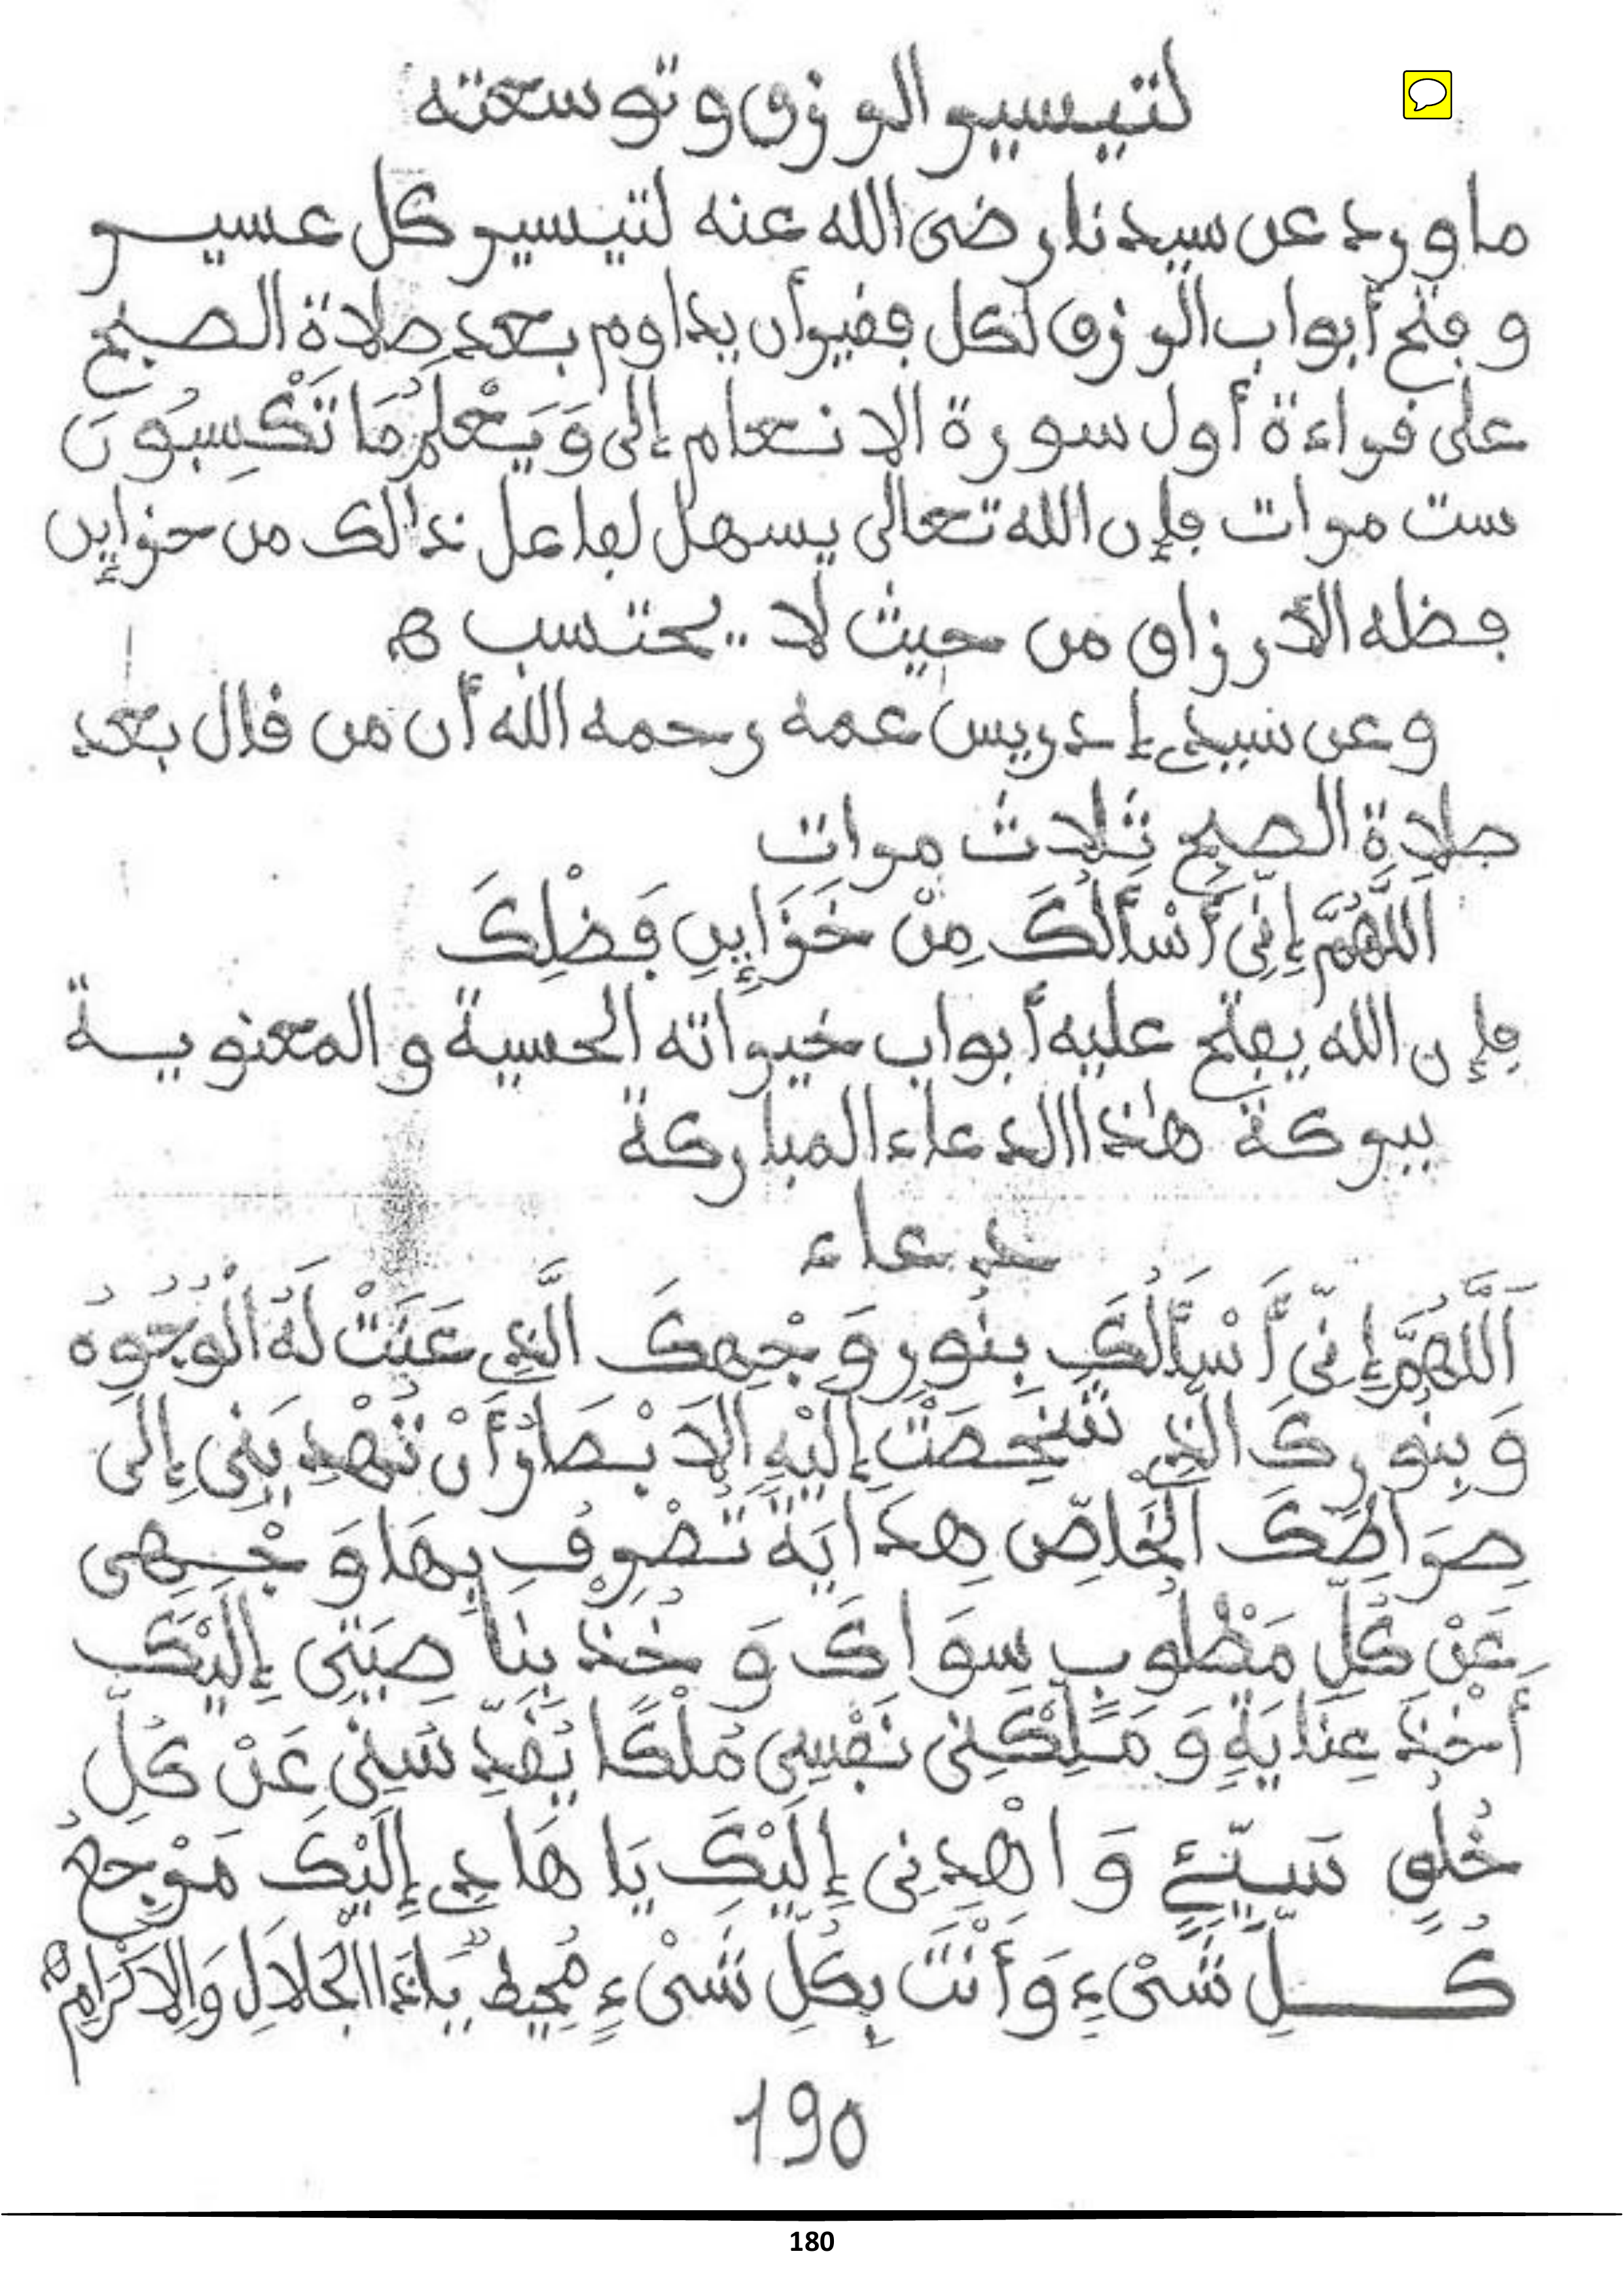 لتيسير الرزق وتوسعته
ما ورد عن سيدنا رضى الله عنه لتيسير كل عسير
و فتح أبواب الرزق لكل فقير أن يداوم بعد صلاة الصبح
على قراءة أول سورة الانعام إلى وَيَعْلَمُ مَا تَكْسِبُونَ
ست مرات فإن الله تعالى يسهل لفاعل ذالك من خزاين
فضله الأرزاق من حيث لا يحتسب ه
وعن سيدي إدريس عمه رحمه الله أن من قال بعد
صلاة الصبح ثلاث مرات
اَللَّهُمَّ إِنِّى أَسْأَلُكَ مِنْ خَزَايِنِ فَضْلِكَ
فإن الله يفتح عليه أبواب خيراته الحسية و المعنوية
ببركة هذا الدعاء المباركة
دعاء
اَللَّهُمَّ إِنِّى أَسْأَلُكَ بِنُورِ وَجْهِكَ الَّذِي عَنَتْ لَهُ الْوُجُوهُ
وَبِنُورِكَ الَّذِي شَخَصَتْ إِلَيْهِ الَابْصَارُ أَنْ تَهْدِيَنِى إِلَى
صِرَاطِكَ الْخَاصِّ هِدَايَةً تَصْرِفُ بِهَا وَجْهِى
عَنْ كُلِّ مَطْلُوبٍ سِوَاكَ وَ خُذْ بِنَاصِيَتِى إِلَيْكَ
أَخْذَ عِنَايَةٍ وَ مَلِّكْنِى نَفْسِى مُلْكًا يُقَدِّسُنِى عَنْ كُلِّ
خُلُقٍ سَيِّئٍ وَ اهْدِنِى إِلَيْكَ يَا هَادِي إِلَيْكَ مَرْجِعُ
كُلِّ شَىْءٍ وَأَنْتَ بِكُلِّ شَىْءٍ مُحِيطٌ يَاذَا الْجَلَالِ وَالِاكْرَامِ ه
190
180